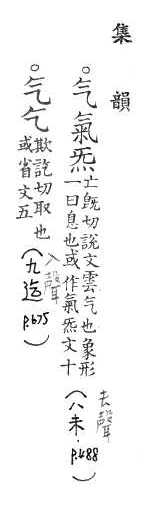 集韻
○气氣炁
亡旣切說文雲气也象形
一曰息也或作氣炁文十
去聲
(八未.P.488)
○气乞
欺訖切取也
或省文五
入聲
(九迄P.675)